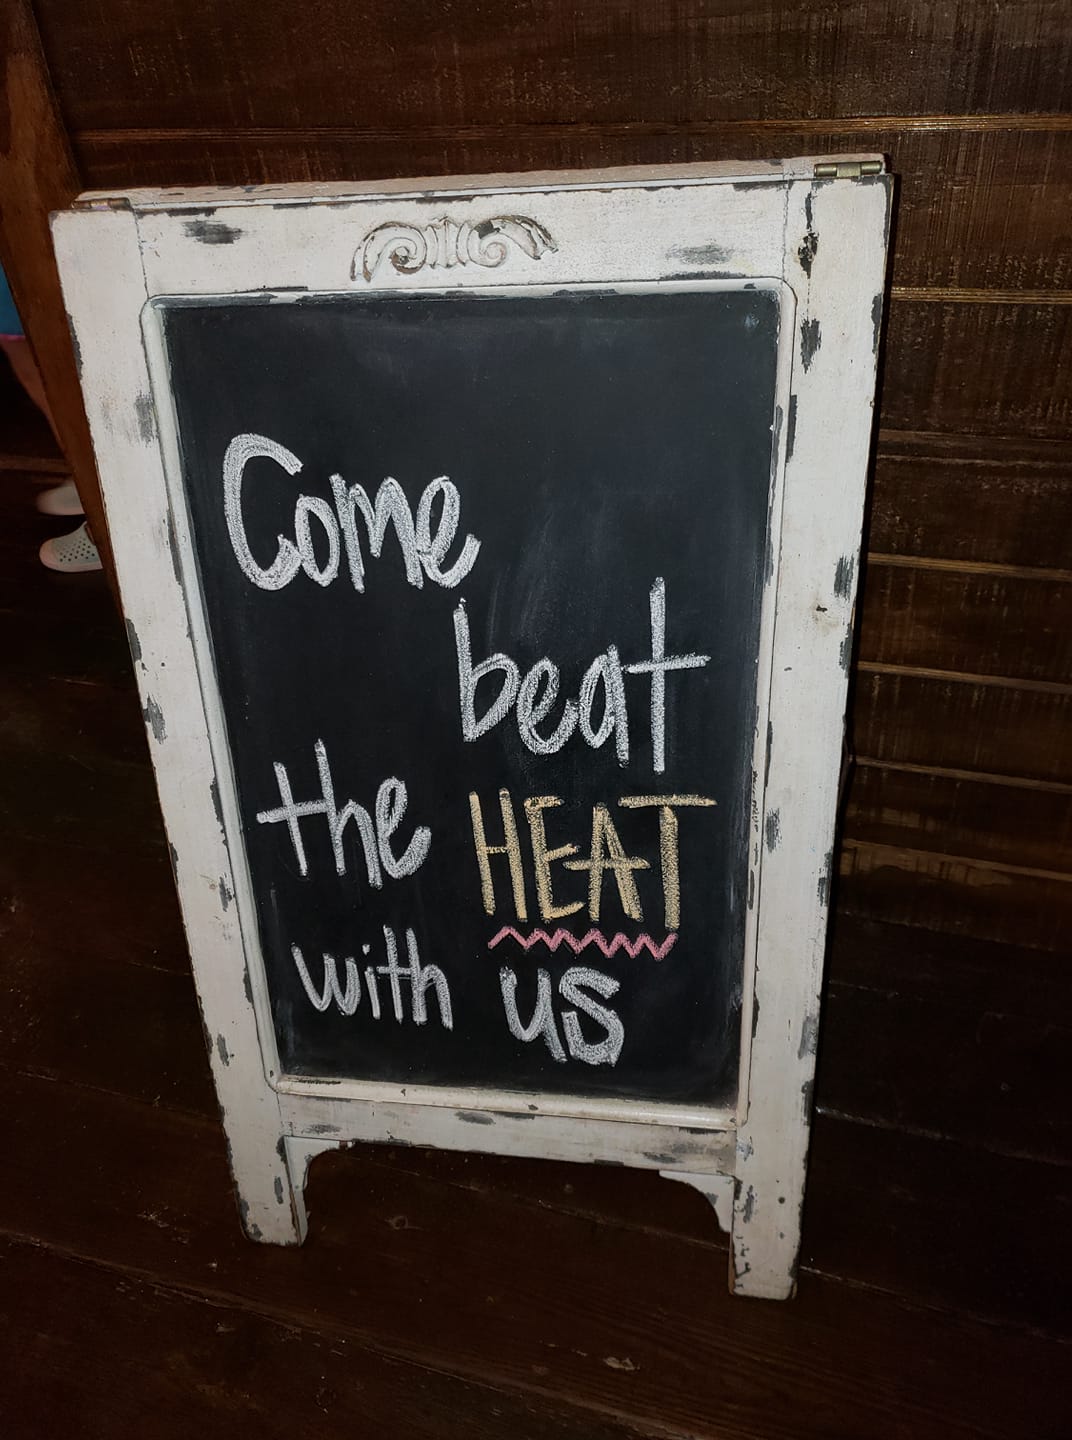 Come
beat
the HEAT
with us